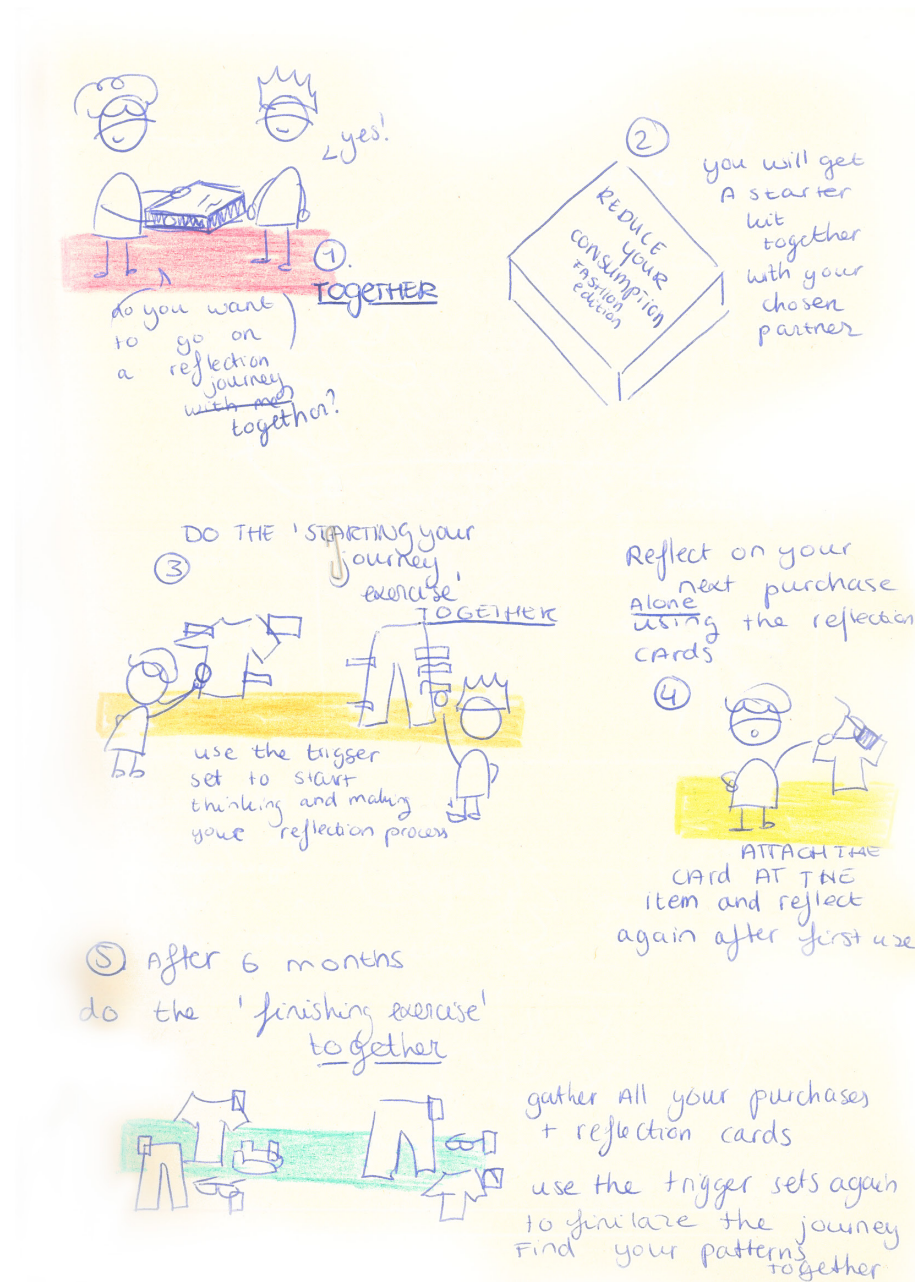 yes!
1.
TOGETHER
do you want
to go on
a reflection
journey
with me
together?
2
REDUCE
YOUR
CONSUMPTION
FASHION
edition
you will get
A starter
kit
together
with your
chosen
partner
DO THE 'STARTING your
journey
exercise'
TOGETHER
3
use the trigger
set to start
thinking and making
your reflection process
Reflect on your
next purchase
Alone
using the reflection
CArds
4
ATTACH THE
CArd AT THE
item and reflect
again after first use
5. After 6 months
do the 'finishing exercise'
together
gather All your purchases
+ reflection cards
use the trigger sets again
to finilaze the journey
Find your patterns
together